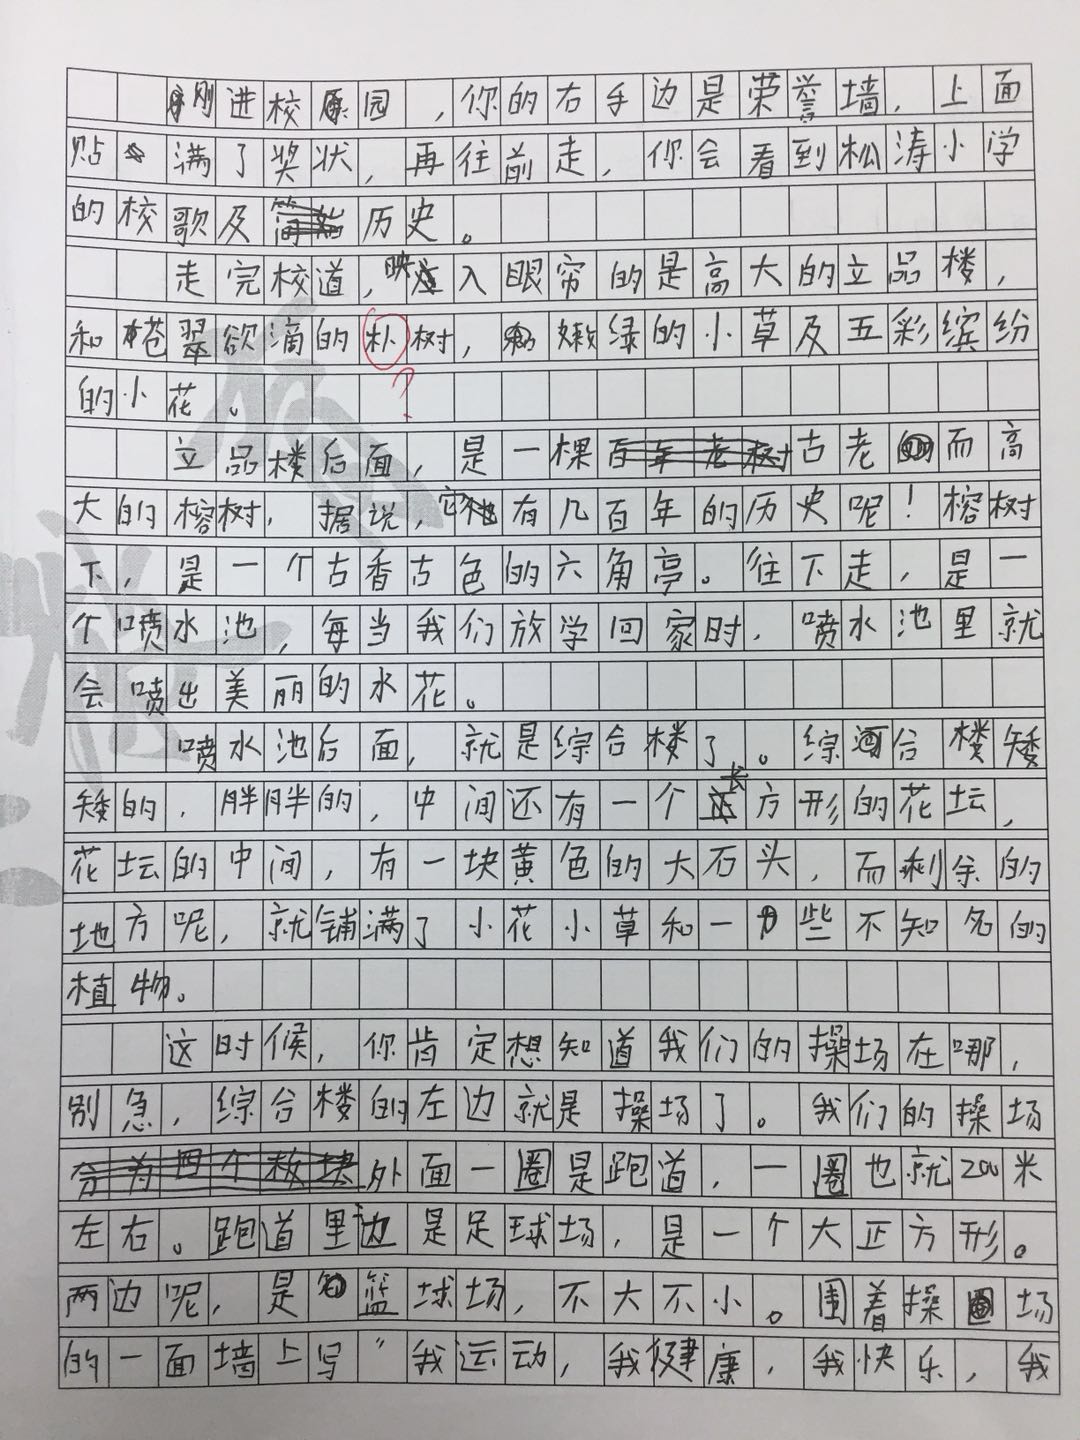 刚进校园，你的右手边是荣誉墙，上面
贴满了奖状，再往前走，你会看到松涛小学
的校歌及历史。
走完校道，映入眼帘的是高大的立品楼，
和苍翠欲滴的朴树，嫩绿的小草及五彩缤纷
的小花。
?
立品楼后面，是一棵古老而高
大的榕树，据说，它有几百年的历史呢！榕树
下，是一个古香古色的六角亭。往下走，是一
个喷水池，每当我们放学回家时，喷水池里就
会喷出美丽的水花。
喷水池后面，就是综合楼了。综合楼矮
矮的，胖胖的，中间还有一个长方形的花坛，
花坛的中间，有一块黄色的大石头，而剩余的
地方呢，就铺满了小花小草和一些不知名的
植物。
这时候，你肯定想知道我们的操场在哪，
别急，综合楼的左边就是操场了。我们的操场
外面一圈是跑道，一圈也就200米
左右。跑道里边是足球场，是一个大正方形。
两边呢，是篮球场，不大不小。围着操场
的一面墙上写“我运动，我健康，我快乐，我